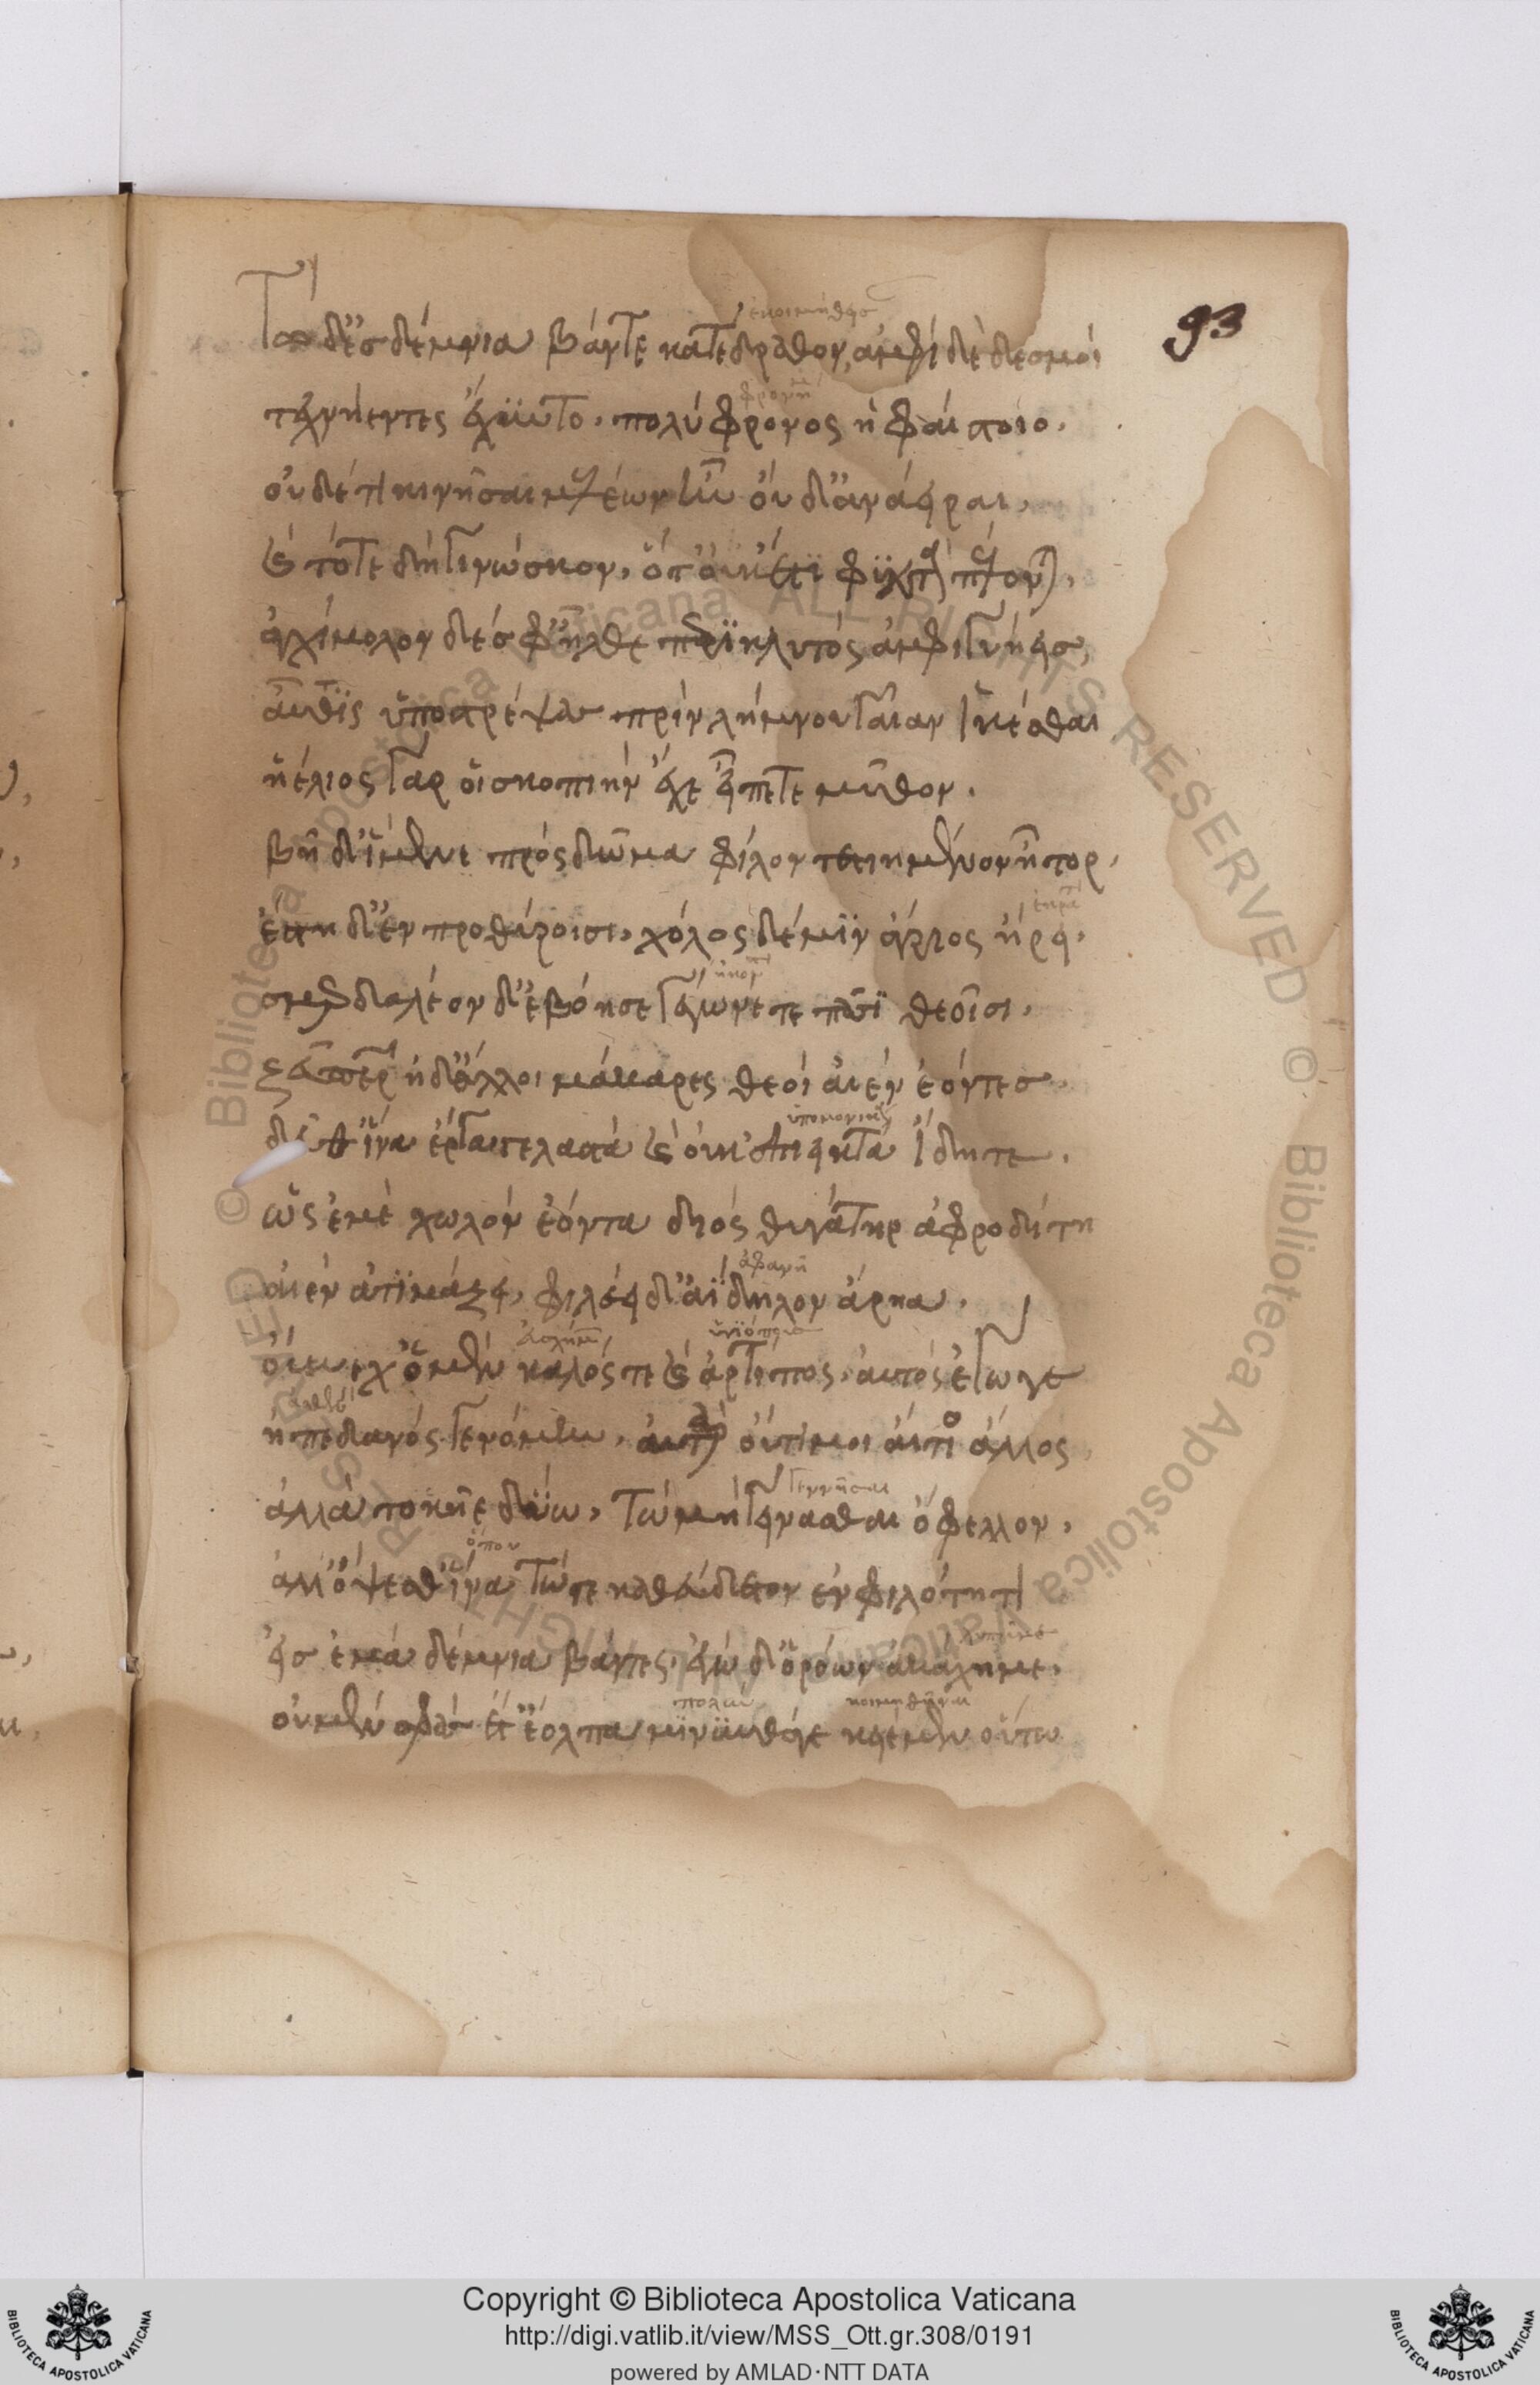 93
ἐκοιμήθησ
Τὼ δ' ἐσ δέμνια βάντε κατέδραθον, ἀμφὶ δὲ δεσμοὶ
τεχνήεντες ἔχυντο. πολύφρονος ἡφαίστοιο.
οὐδέ τι κινῆσαι μελέων ἦν οὐδ' ἀναεῖραι,
καὶ τότε δὴ γίνωσκον, ὅτ' οὐκέτι φυκτὰ πέλονται,
ἀγχίμολον δέ σφ' ἦλθε περικλυτὸς ἀμφιγυήεισ,
αὖθις ὑποστρέψας πρὶν λήμνου γαῖαν ἱκέσθαι
ἠέλιος γάρ οἱ σκοπιὴν ἔχε εἶπέ τε μῦθον.
βῆ δ' ἴμεναι πρὸς δῶμα φίλον τετιημένον ἦτορ,
ἔστη δ' ἐν προθύροισι, χόλος δέ μιν ἄγριος ᾕρει.
σμερδαλέον δ' ἐβόησε γέγωνέ τε πᾶσι θεοῖσι.
ζεῦ πάτερ ἠδ' ἄλλοι μάκαρες θεοὶ αἰὲν ἐόντεσ.
δεῦθ' ἵνα ἔργα γελαστὰ καὶ οὐκ ἐπιεικτὰ ἴδητε.
ὡς ἐμὲ χωλὸν ἐόντα διὸς θυγάτηρ ἀφροδίτη
ἀφανῆ
αἰὲν ἀτιμάζει, φιλέει δ' ἀΐδηλον ἄρηα.
οὕνεχ' ὁ μὲν καλός τε καὶ ἀρτίπος, αὐτὰρ ἔγωγε
ἠπεδανὸς γενόμην. ἀτὰρ οὔτι μοι αἴτιος ἄλλος
γεννῆσαι
ἀλλὰ τοκῆε δύω, τὼ μὴ γείνασθαι ὄφελλον.
ὅπου
ἀλλ' ὄψεσθ' ἵνα τώγε καθεύδετον ἐν φιλότητι
εἰσ ἐμὰ δέμνια βάντες, ἐγὼ δ' ὁρόων ἀκάχημαι.
κοιμηθῆναι
οὐ μέν σφεας ἔτ' ἔολπα μίνυνθά γε κειέμεν οὕτω
Copyright © Biblioteca Apostolica Vaticana
http://digi.vatlib.it/view/MSS_Ott.gr.308/0191
powered by AMLAD·NTT DATA